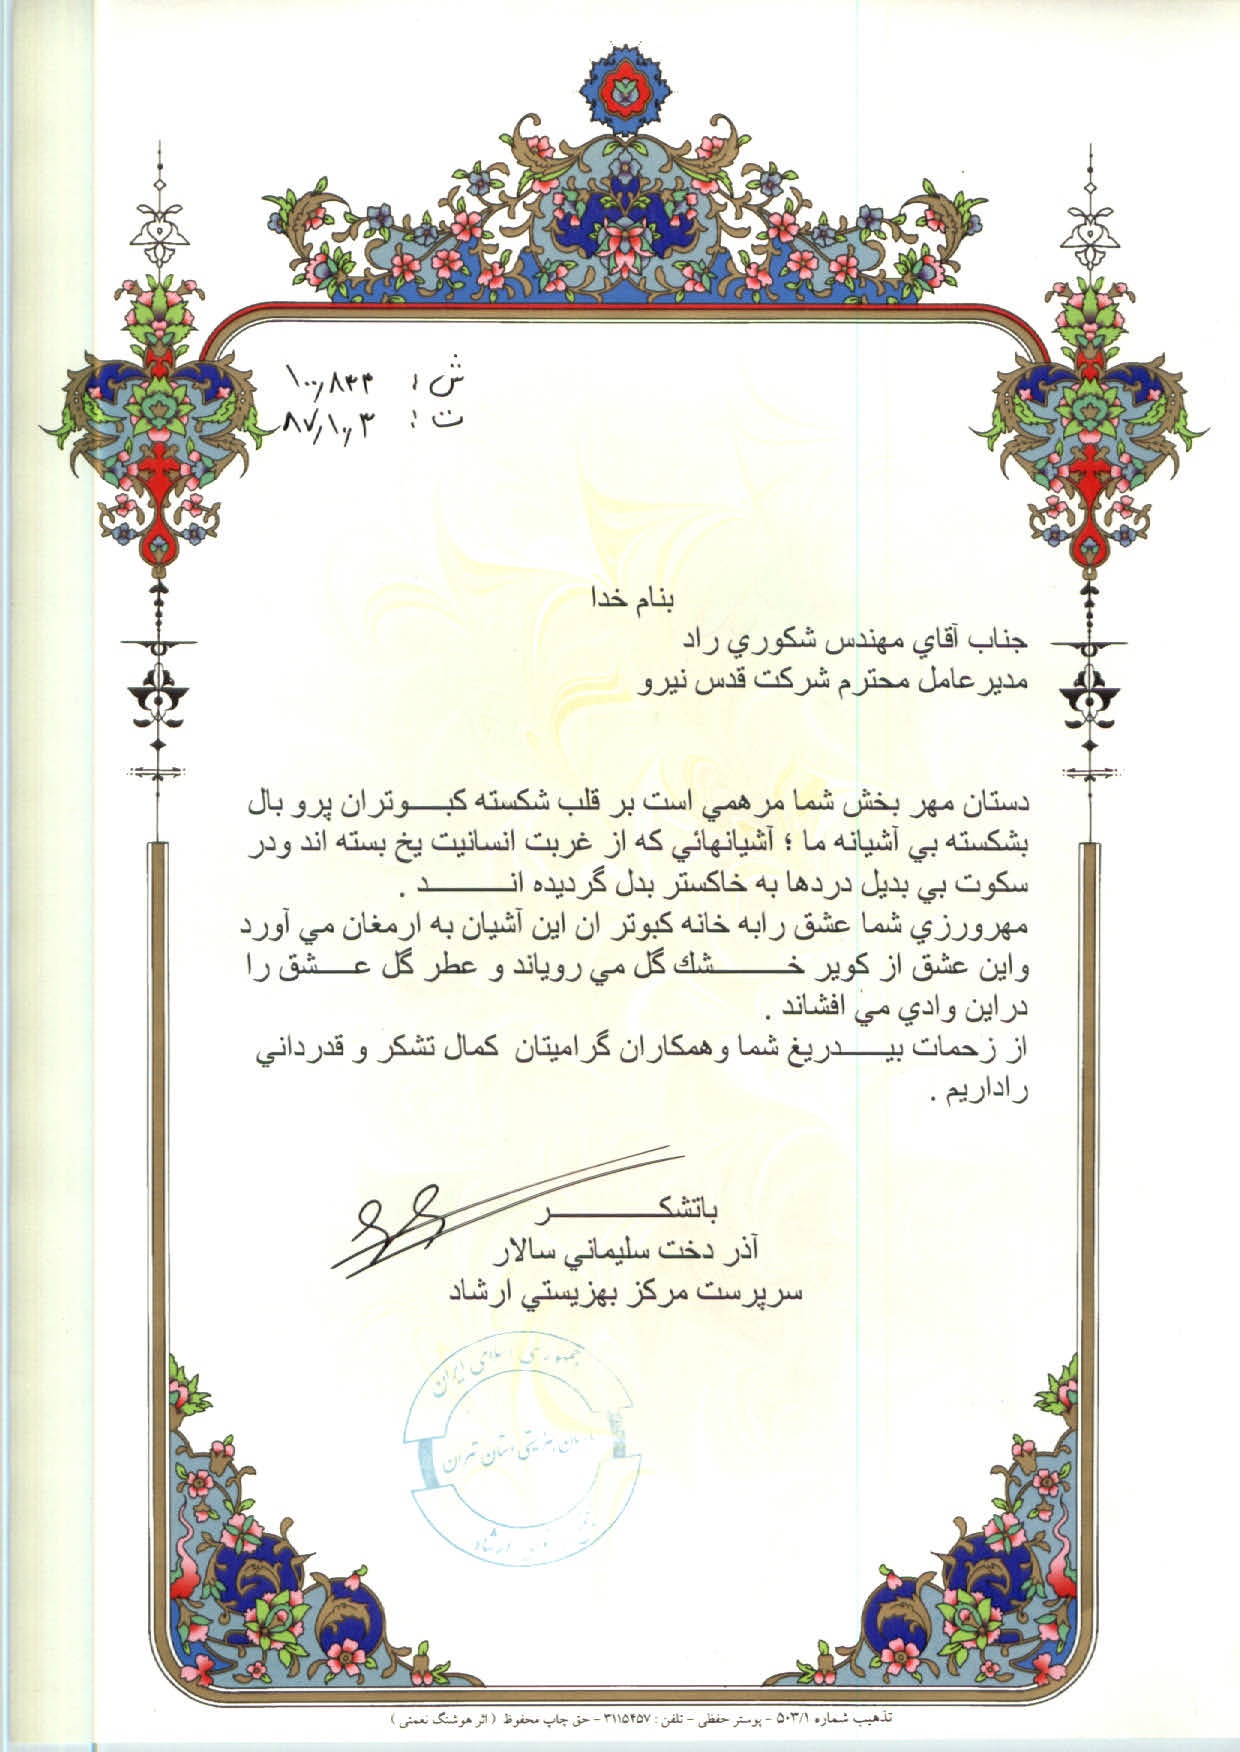 ش : ۱۰۰/۸۴۴
ت : ۸۷/۱۰/۳
بنام خدا
جناب آقاي مهندس شكوري راد
مدير عامل محترم شركت قدس نيرو
دستان مهر بخش شما مرهمي است بر قلب شكسته كبـــوتران پرو بال
بشكسته بي آشيانه ما ؛ آشيانهائي كه از غربت انسانيت يخ بسته اند ودر
سكوت بي بديل دردها به خاكستر بدل گرديده انـــــــد .
مهرورزي شما عشق رابه خانه كبوتر ان اين آشيان به ارمغان مي آورد
و اين عشق از كوير خـــــــشك گل مي روياند و عطر گل عـــشق را
دراين وادي مي افشاند .
از زحمات بيـــــدريغ شما وهمكاران گراميتان كمال تشكر و قدرداني
راداريم .
باتشكـــــــــــر
آذر دخت سليماني سالار
سرپرست مركز بهزيستي ارشاد
جمهوری اسلامی ایران
سازمان بهزیستی استان تهران
ارشاد
تذهیب شماره ۵۰۳/۱ - پوستر حفظی - تلفن : ۳۱۱۵۴۵۷ - حق چاپ محفوظ ( اثر هوشنگ نعمتی )